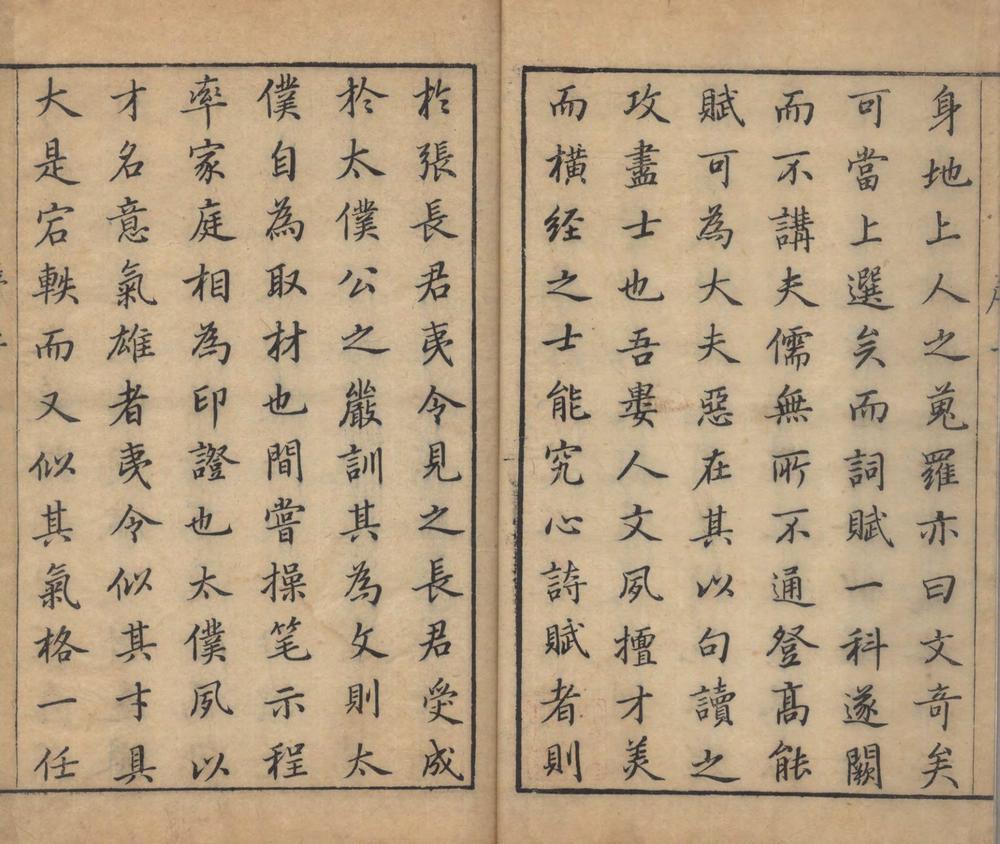 身地上人之蒐羅亦曰文奇矣
可當上選矣而詞賦一科遂闕
而不講夫儒無所不通登高能
賦可為大夫惡在其以句讀之
攻盡士也吾婁人文夙擅才美
而橫经之士能究心詩賦者則
於張長君夷令見之長君受成
於太僕公之嚴訓其為文則太
僕自為取材也間嘗操笔示程
率家庭相為印證也太僕夙以
才名意氣雄者夷令似其才具
大是宕軼而又似其氣格一任